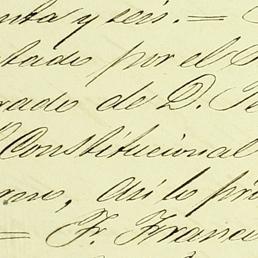 enta y seis. =
tado por el
rado de D. Pe
Constitucional
rme, Asi lo pro
= Fr. Franci